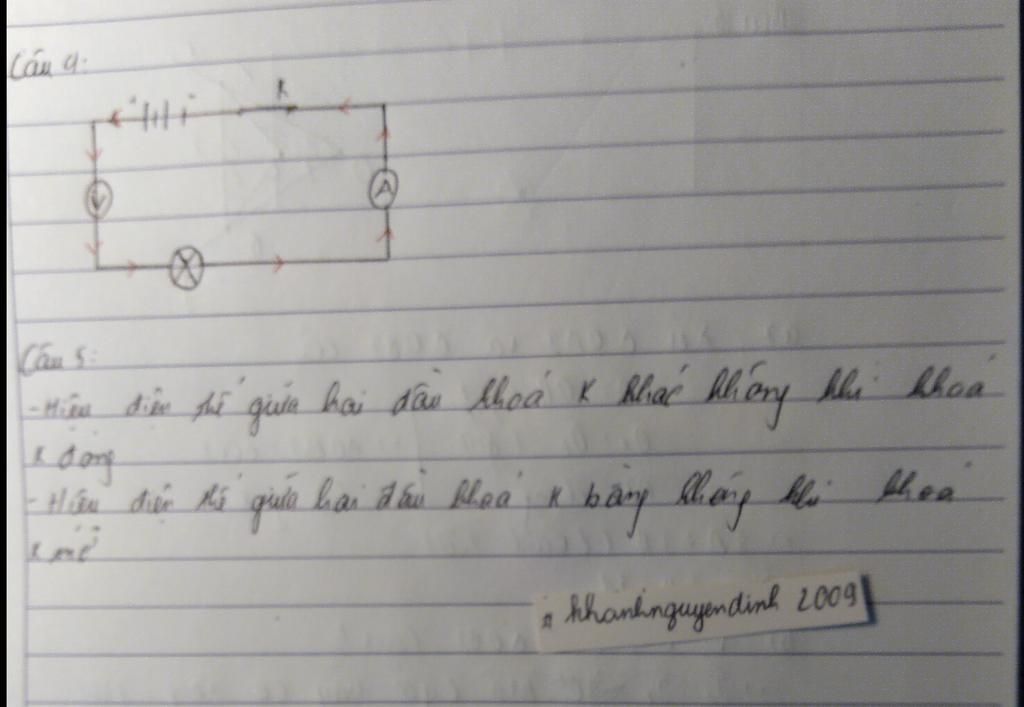 Câu 4:
K
V
A
Câu 5:
- Hiệu điện thế giữa hai đầu khoá K khác không khi khoá
K đóng
- Hiệu điện thế giữa hai đầu khoá K bằng không khi khoá
K mở
khanhnguyendinh 2009